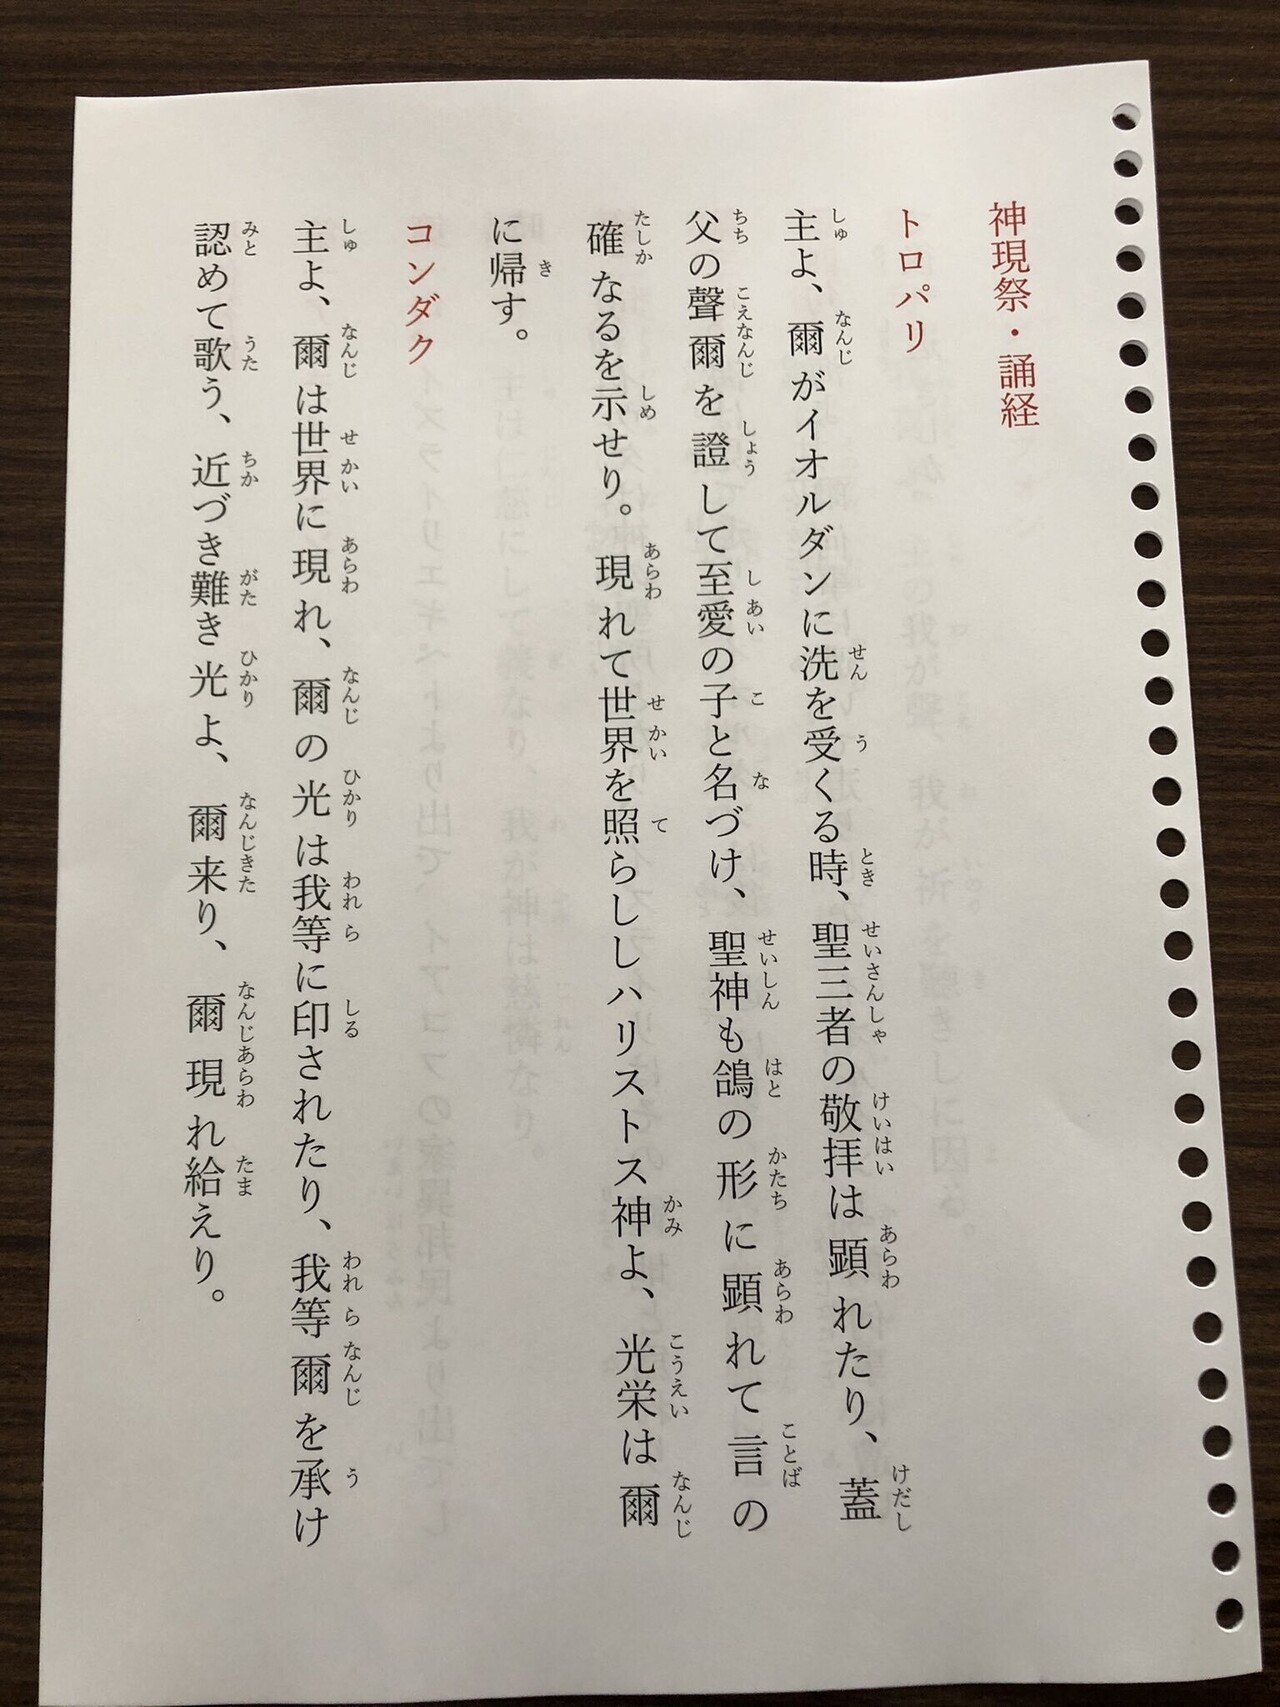 神現祭・誦経
トロパリ
主よ、爾がイオルダンに洗を受くる時、聖三者の敬拝は顕れたり、蓋
父の聲爾を證して至愛の子と名づけ、聖神も鴿の形に顕れて言の
確なるを示せり。現れて世界を照らししハリストス神よ、光栄は爾
に帰す。
コンダク
主よ、爾は世界に現れ、爾の光は我等に印されたり、我等爾を承け
認めて歌う、近づき難き光よ、爾来り、爾現れ給えり。